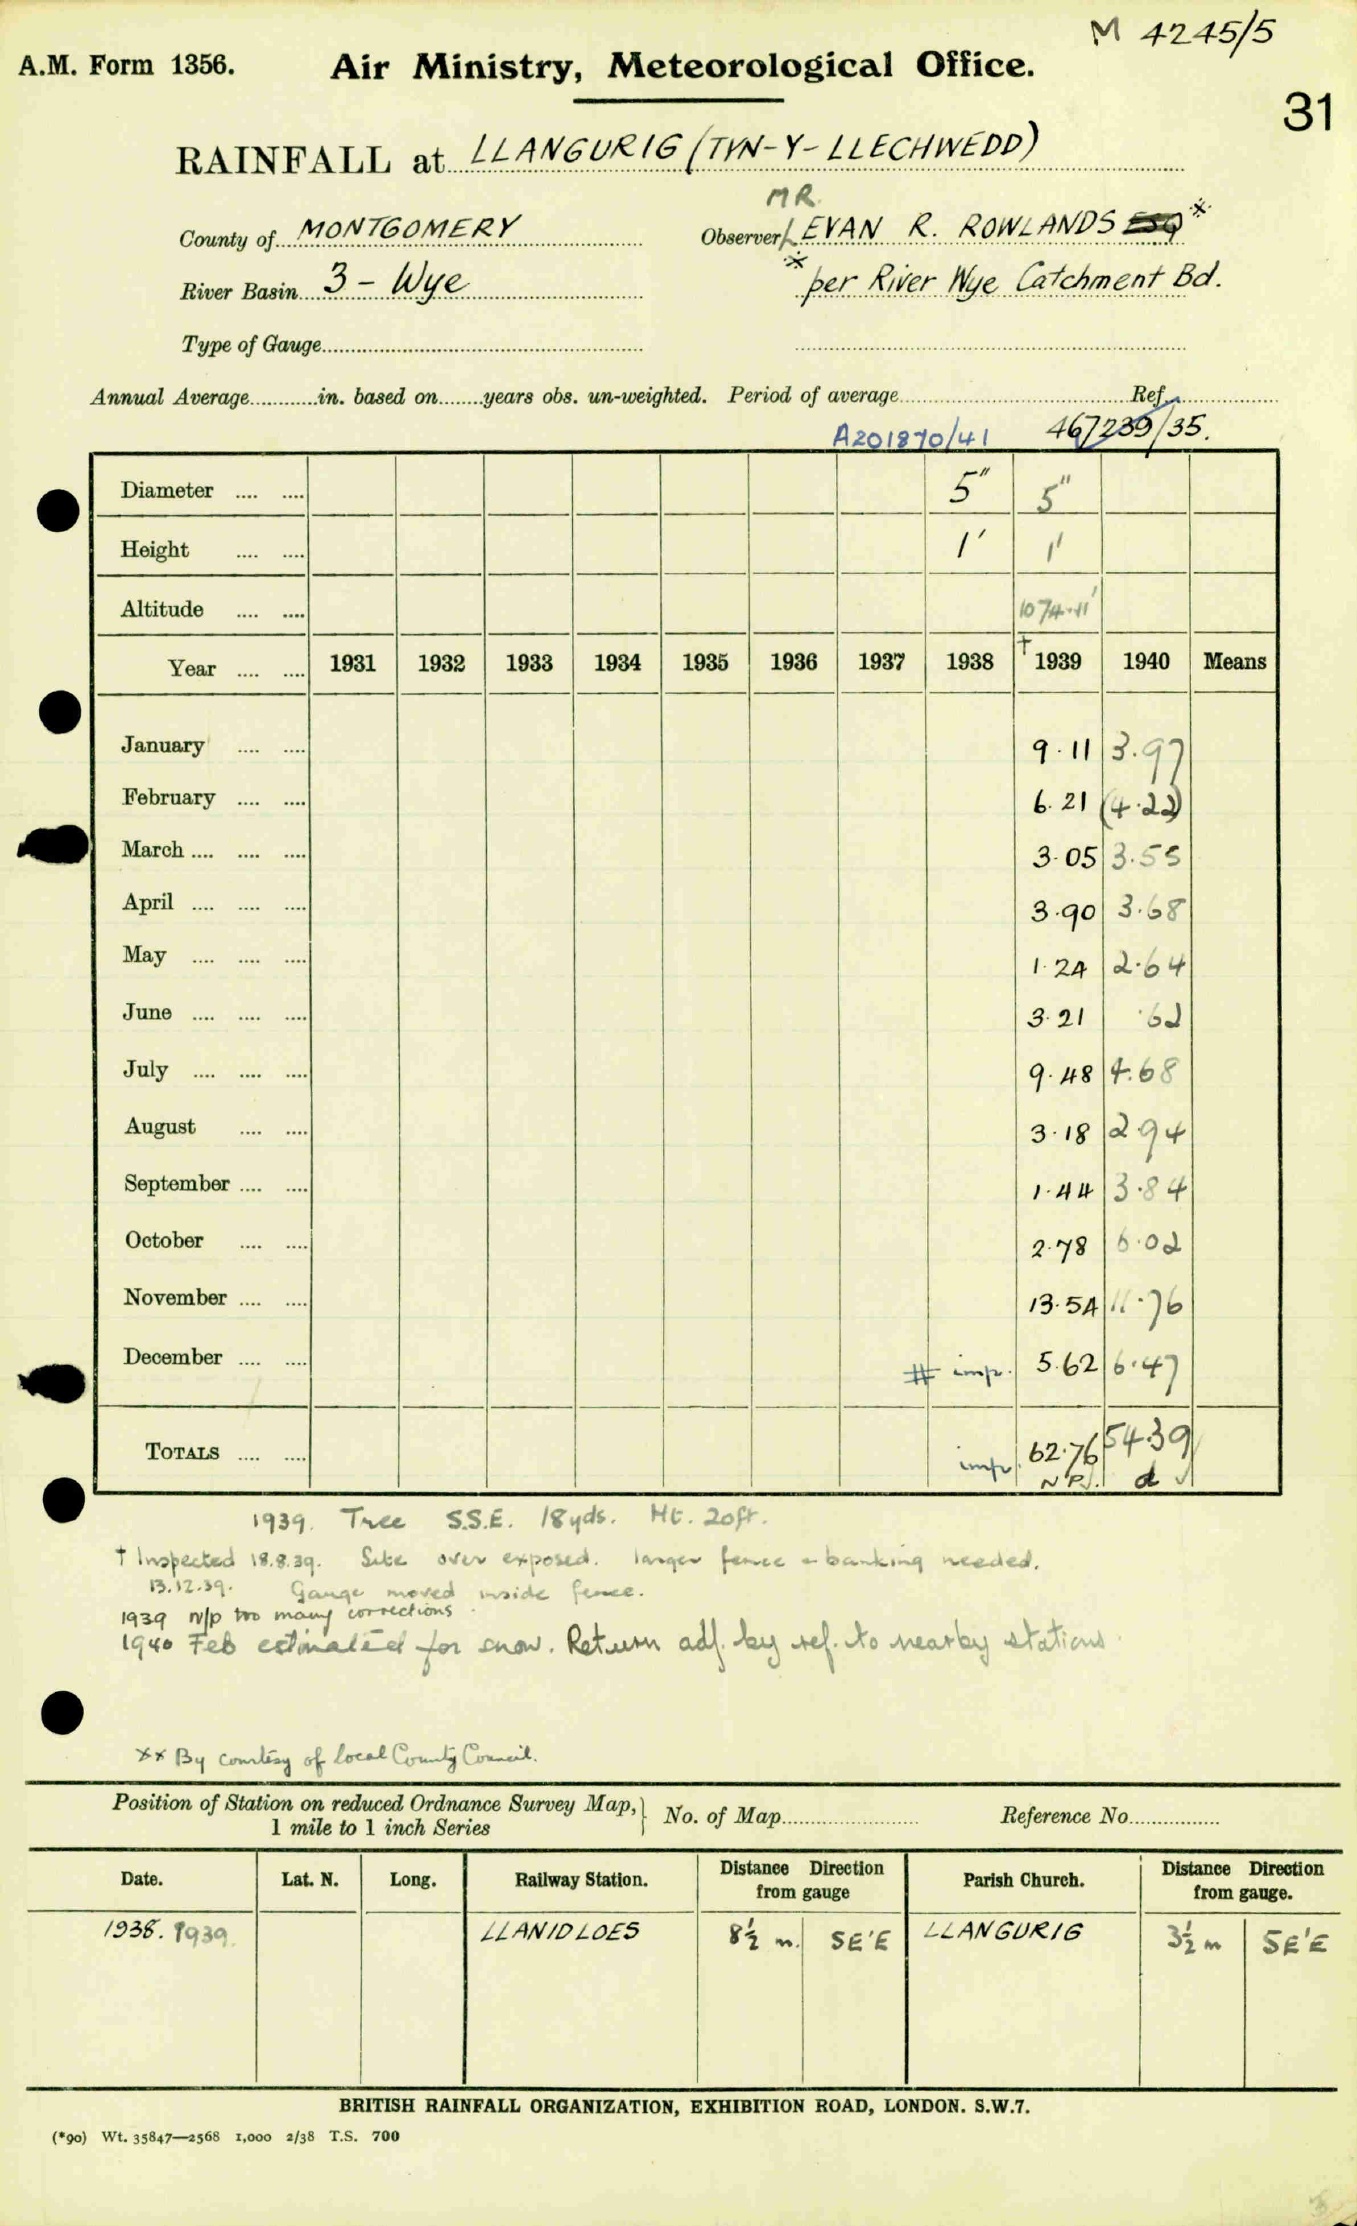 M 4245/5
A.M. Form 1356. Air Ministry, Meteorological Office.
31
RAINFALL at LLANGURIG (TYN-Y-LLECHWEDD)
MR.
County of MONTGOMERY Observer EVAN R. ROWLANDS ESQ *
River Basin 3 - Wye * per River Wye Catchment Bd.
Type of Gauge
Annual Average in. based on years obs. un-weighted. Period of average Ref.
A201870/41 467239/35.
Diameter .... .... 5" 5"
Height .... .... 1' 1'
Altitude .... .... 1074.11'
Year .... .... 1931 1932 1933 1934 1935 1936 1937 1938 † 1939 1940 Means
January .... .... 9.11 3.97
February .... .... 6.21 (4.22)
March .... .... .... 3.05 3.55
April .... .... .... 3.90 3.68
May .... .... .... 1.24 2.64
June .... .... .... 3.21 .62
July .... .... .... 9.48 4.68
August .... .... 3.18 2.94
September .... .... 1.44 3.84
October .... .... 2.78 6.02
November .... .... 13.54 11.76
December .... .... # imp. 5.62 6.47
TOTALS .... .... imp. 62.76 54.39
N.P. d ✓
1939. Tree S.S.E. 18yds. Ht. 20ft.
† Inspected 18.8.39. Site over exposed. larger fence & banking needed.
13.12.39. Gauge moved inside fence.
1939 n/p too many corrections
1940 Feb estimated for snow. Return adj. by ref. to nearby stations.
** By courtesy of local County Council.
Position of Station on reduced Ordnance Survey Map, 1 mile to 1 inch Series } No. of Map Reference No.
Date. Lat. N. Long. Railway Station. Distance Direction from gauge Parish Church. Distance Direction from gauge.
1938. 1939. LLANIDLOES 8½ m. SE'E LLANGURIG 3½ m SE'E
BRITISH RAINFALL ORGANIZATION, EXHIBITION ROAD, LONDON. S.W.7.
(*90) Wt. 35847—2568 1,000 2/38 T.S. 700